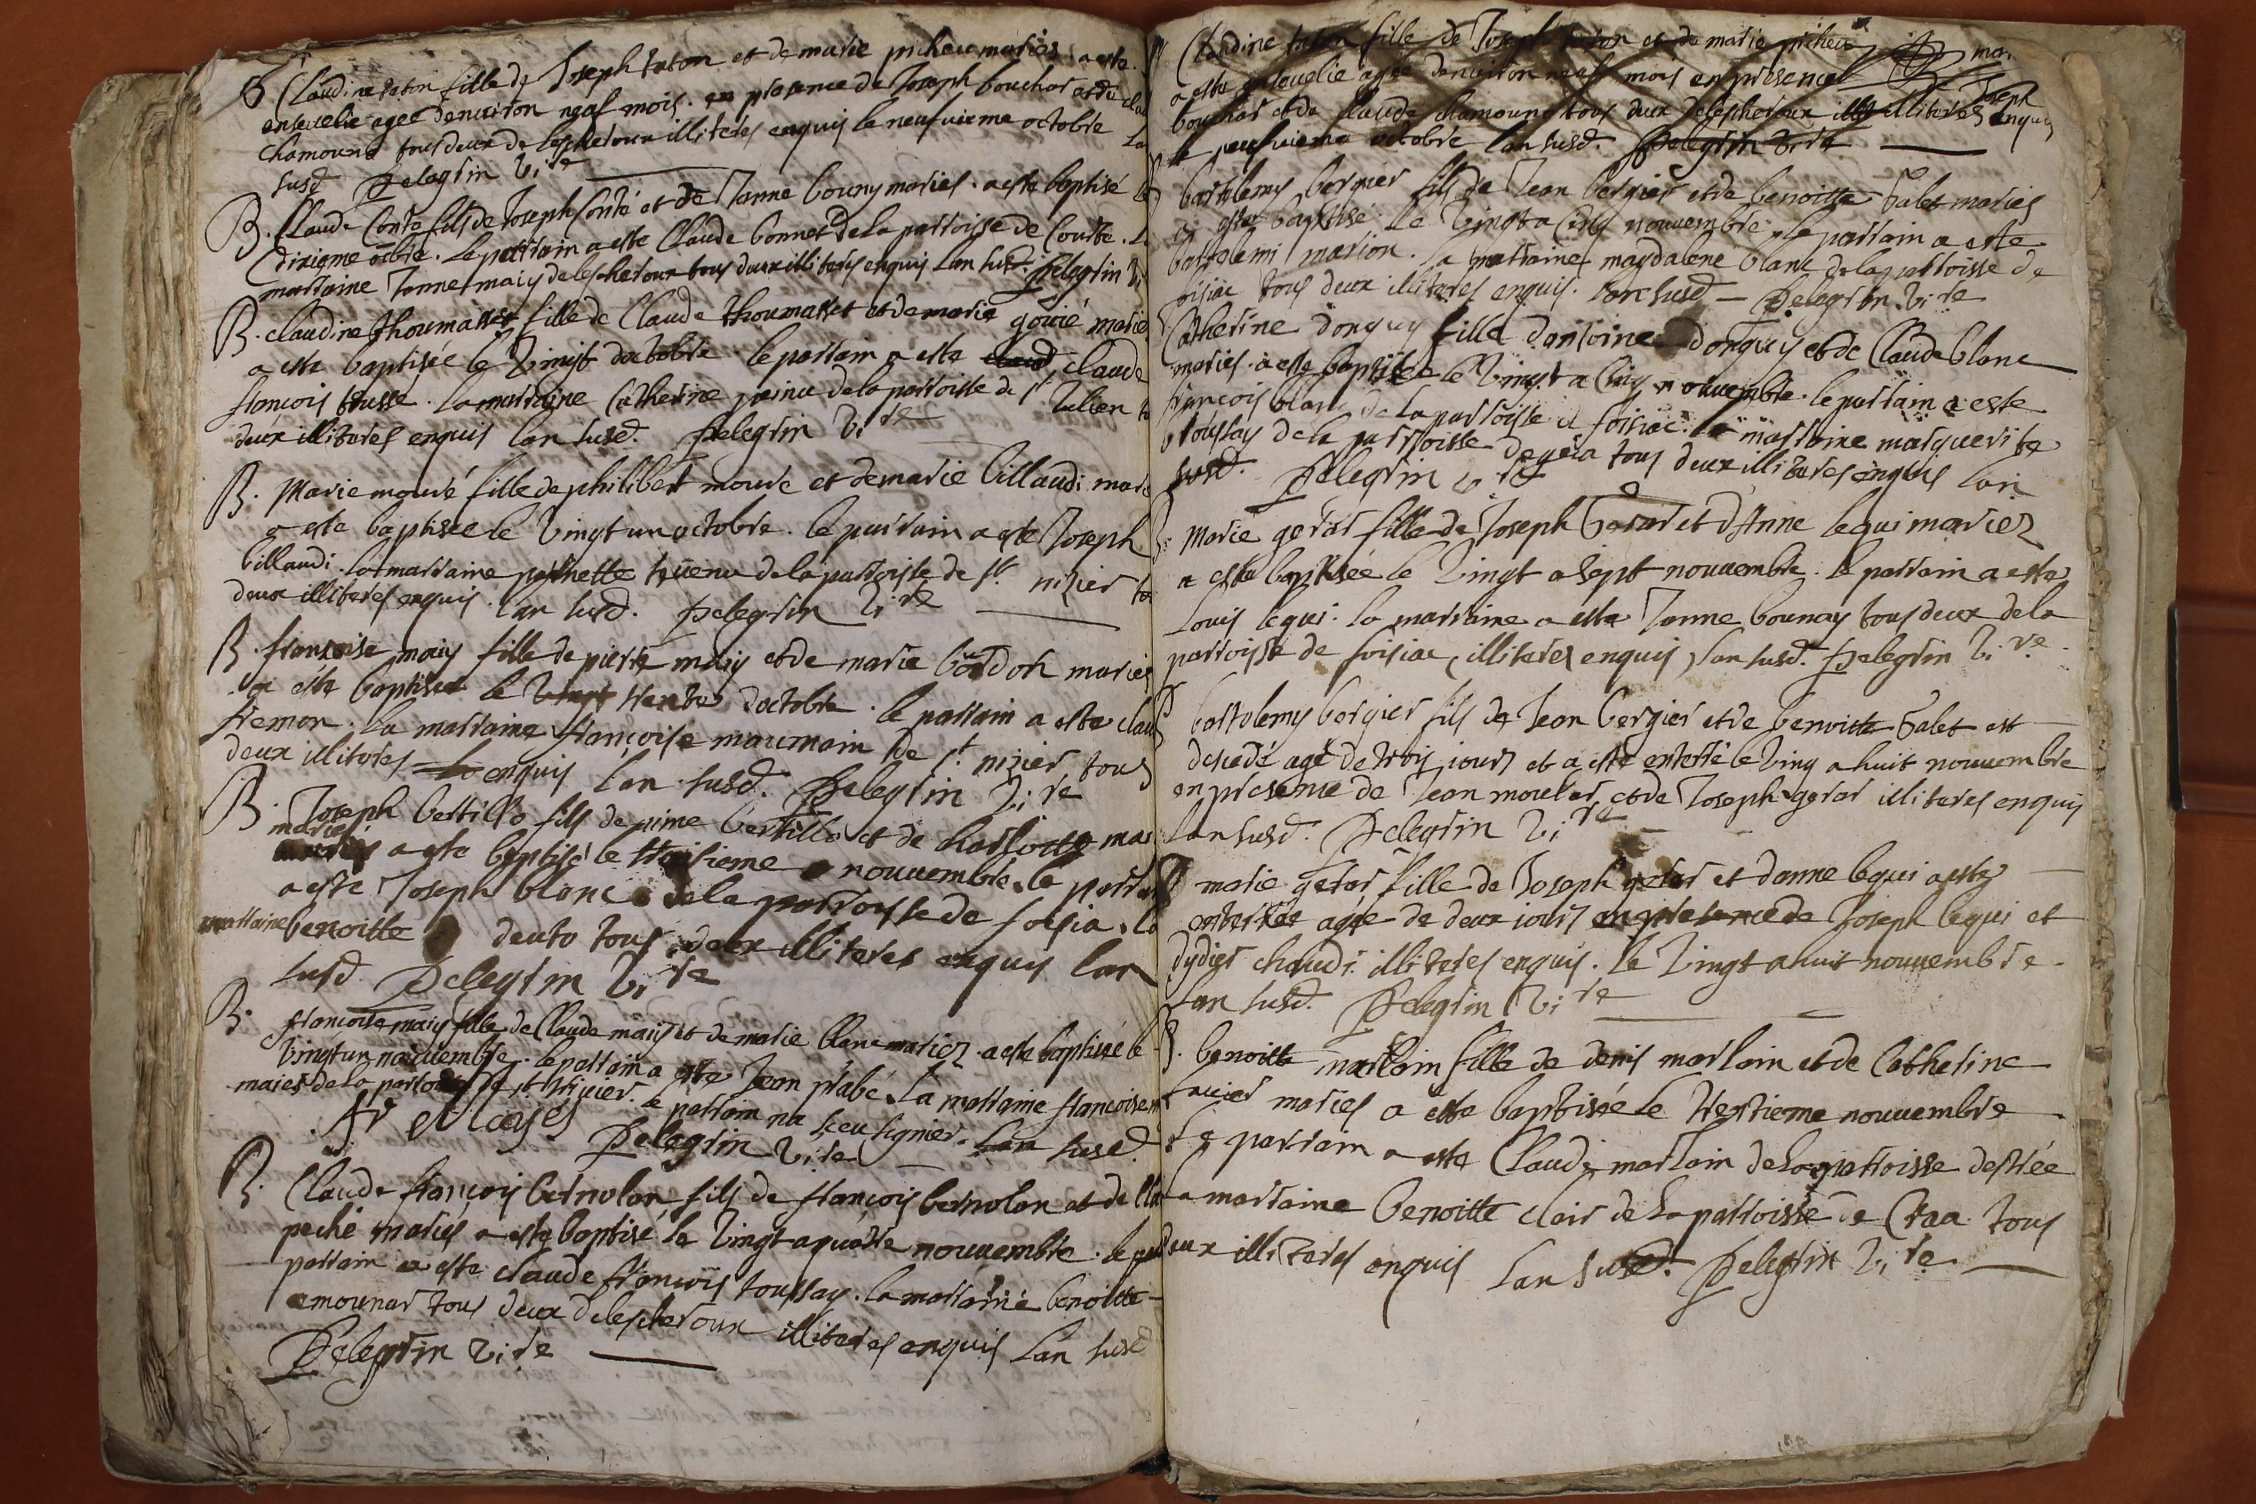 Claudine taton fille de Joseph taton et de marie picheu mariés a este
ensevelie agee denviron neuf mois. en presence de Joseph bouchar et de
chamouna tous deux de lescheroux illiteres enquis le neufvieme octobre
susd Pelegrin vi re
B. Claude Conte fils de Joseph Conté et de Janne bouny mariés. a este baptisé
dixieme octbre. Le parrain a este Claude bonnet de la parroisse de Courte.
marraine Janne maiy de lescheroux tous deux illiteres enquis Lan susd. Pelegrin vi
B. claudine thoumasset fille de Claude thoumasset et de marie goüié mariés
a este baptisée le vingt doctobre. le parrain a este claude
francois trussé. La marraine Catherine parinu de la parroisse de st Julien
deux illiteres enquis lan susd. Pelegrin vi re
B. Marie mouré fille de philibert moure et de marie billaudi
a este baptisee le vingt un octobre. le parrain a este Joseph
billaudi. la marraine pernette de la parroisse de st. nizier
deux illiteres enquis lan susd. Pelegrin vi re
B. francoise maiy fille de pierre maiy et de marie bourdon mariés
a este baptisee le trente doctobre. le parrain a este
fremon. la marraine françoise maumain de st nizier tous
deux illiteres enquis lan susd. Pelegrin vi re
B. Joseph bertillo fils de pime bertillo et de charlotte
mariés a este baptisé le troisieme nouuembre. le
a este Joseph blanc de la parroisse de foisia. la
marraine benoitte deuto tous deux illiteres enquis lan
susd Pelegrin vi re
B. francoise maiy fille de Claude maiy et de marie blanc mariez a este baptisée le
vingt un nouuembre. le parrain a este Jean prabé. La marraine francoise
maies de la parroisse de st Nizier. le parrain na sceu signier. Lan susd.
Pelegrin vi re
B. Claude françois bernolon fils de françois bernolon et de
peché mariés a este baptisé le vingt a quatre nouuembre. le
parrain a este claude françois toussay. la marraine benoitte
emounar tous deux de lescheroux illiteres enquis Lan susd
Pelegrin vi re
Claudine taton fille de Joseph taton et de marie picheu
a este ensevelie agee denviron neuf mois en presence Joseph
bouchar et de claude chamouna tous deux de lescheroux illiteres enquis
le neufvieme octobre lan susd. Pelegrin vi re
bartolemy bergier fils de Jean bergier et de benoitte Valet mariés
a este baptisé. le vingt a cinq nouuembre. le parrain a este
bartelemi marion. la marraine magdalene blanc de la parroisse de
foisiac tous deux illiteres enquis. lan susd. Pelegrin vi re
Catherine donguy fille dantoine donguy et de Claude blanc
mariés. a este baptisée le vingt a cinq nouuembre. le parrain a este
françois blanc de la parroisse de foisiac. la marraine marguerite
broussay de la parroisse de tous deux illiteres enquis lan
susd. Pelegrin vi re
Marie gerar fille de Joseph Gerar et d'Anne lequi mariez
a este baptisée le vingt a sept nouuembre. le parrain a este
Louis lequi. la marraine a este Janne bounay tous deux de la
parroisse de foisiac, illiteres enquis, lan susd. Pelegrin vi re.
bartolemy bergier fils de Jean bergier et de benoitte Valet est
decedé agé de trois iours et a este enterré le ving a huit nouuembre
en presence de Jean mouler et de Joseph gerar illiteres enquis
lan susd. Pelegrin vi re
marie gerar fille de Joseph gerar et danne lequi a este
enterree agée de deux iours en presence de Joseph lequi et
dydier chaudi. illiteres enquis. le vingt a huit nouuembre.
lan susd. Pelegrin vi re
B. benoitte marlain fille de denis marlain et de Catherine
mariés a este baptisée le trentieme nouuembre.
Le parrain a este Claude marlain de la parroisse destrée
La marraine benoitte clair de la parroisse de Craa tous
deux illiteres enquis Lan susd. Pelegrin vi re